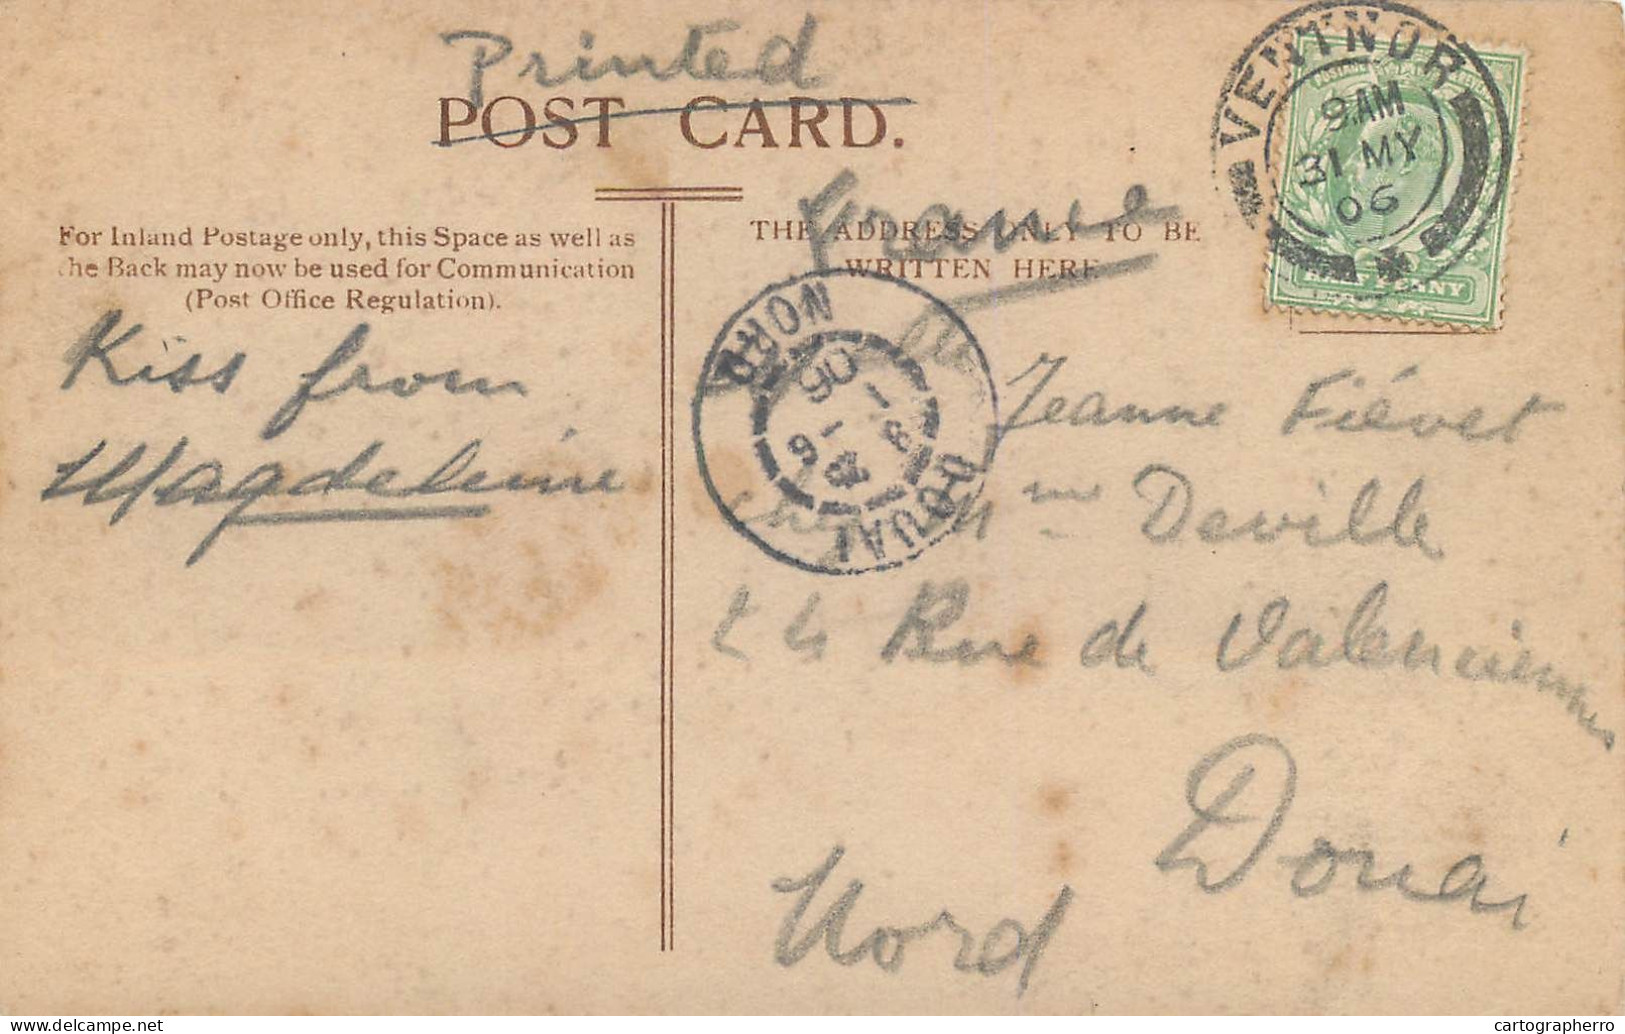 Printed
POST CARD.
For Inland Postage only, this Space as well as
the Back may now be used for Communication
(Post Office Regulation).
THE ADDRESS ONLY TO BE
WRITTEN HERE
France
VENTNOR
9.AM
31 MY
06
HALF PENNY
Kiss from
Magdeleine
DOUAI
NORD
06
Jeanne Fiévet
Mme Deville
24 Rue de Valenciennes
Douai
Nord
delcampe.net
cartographerro